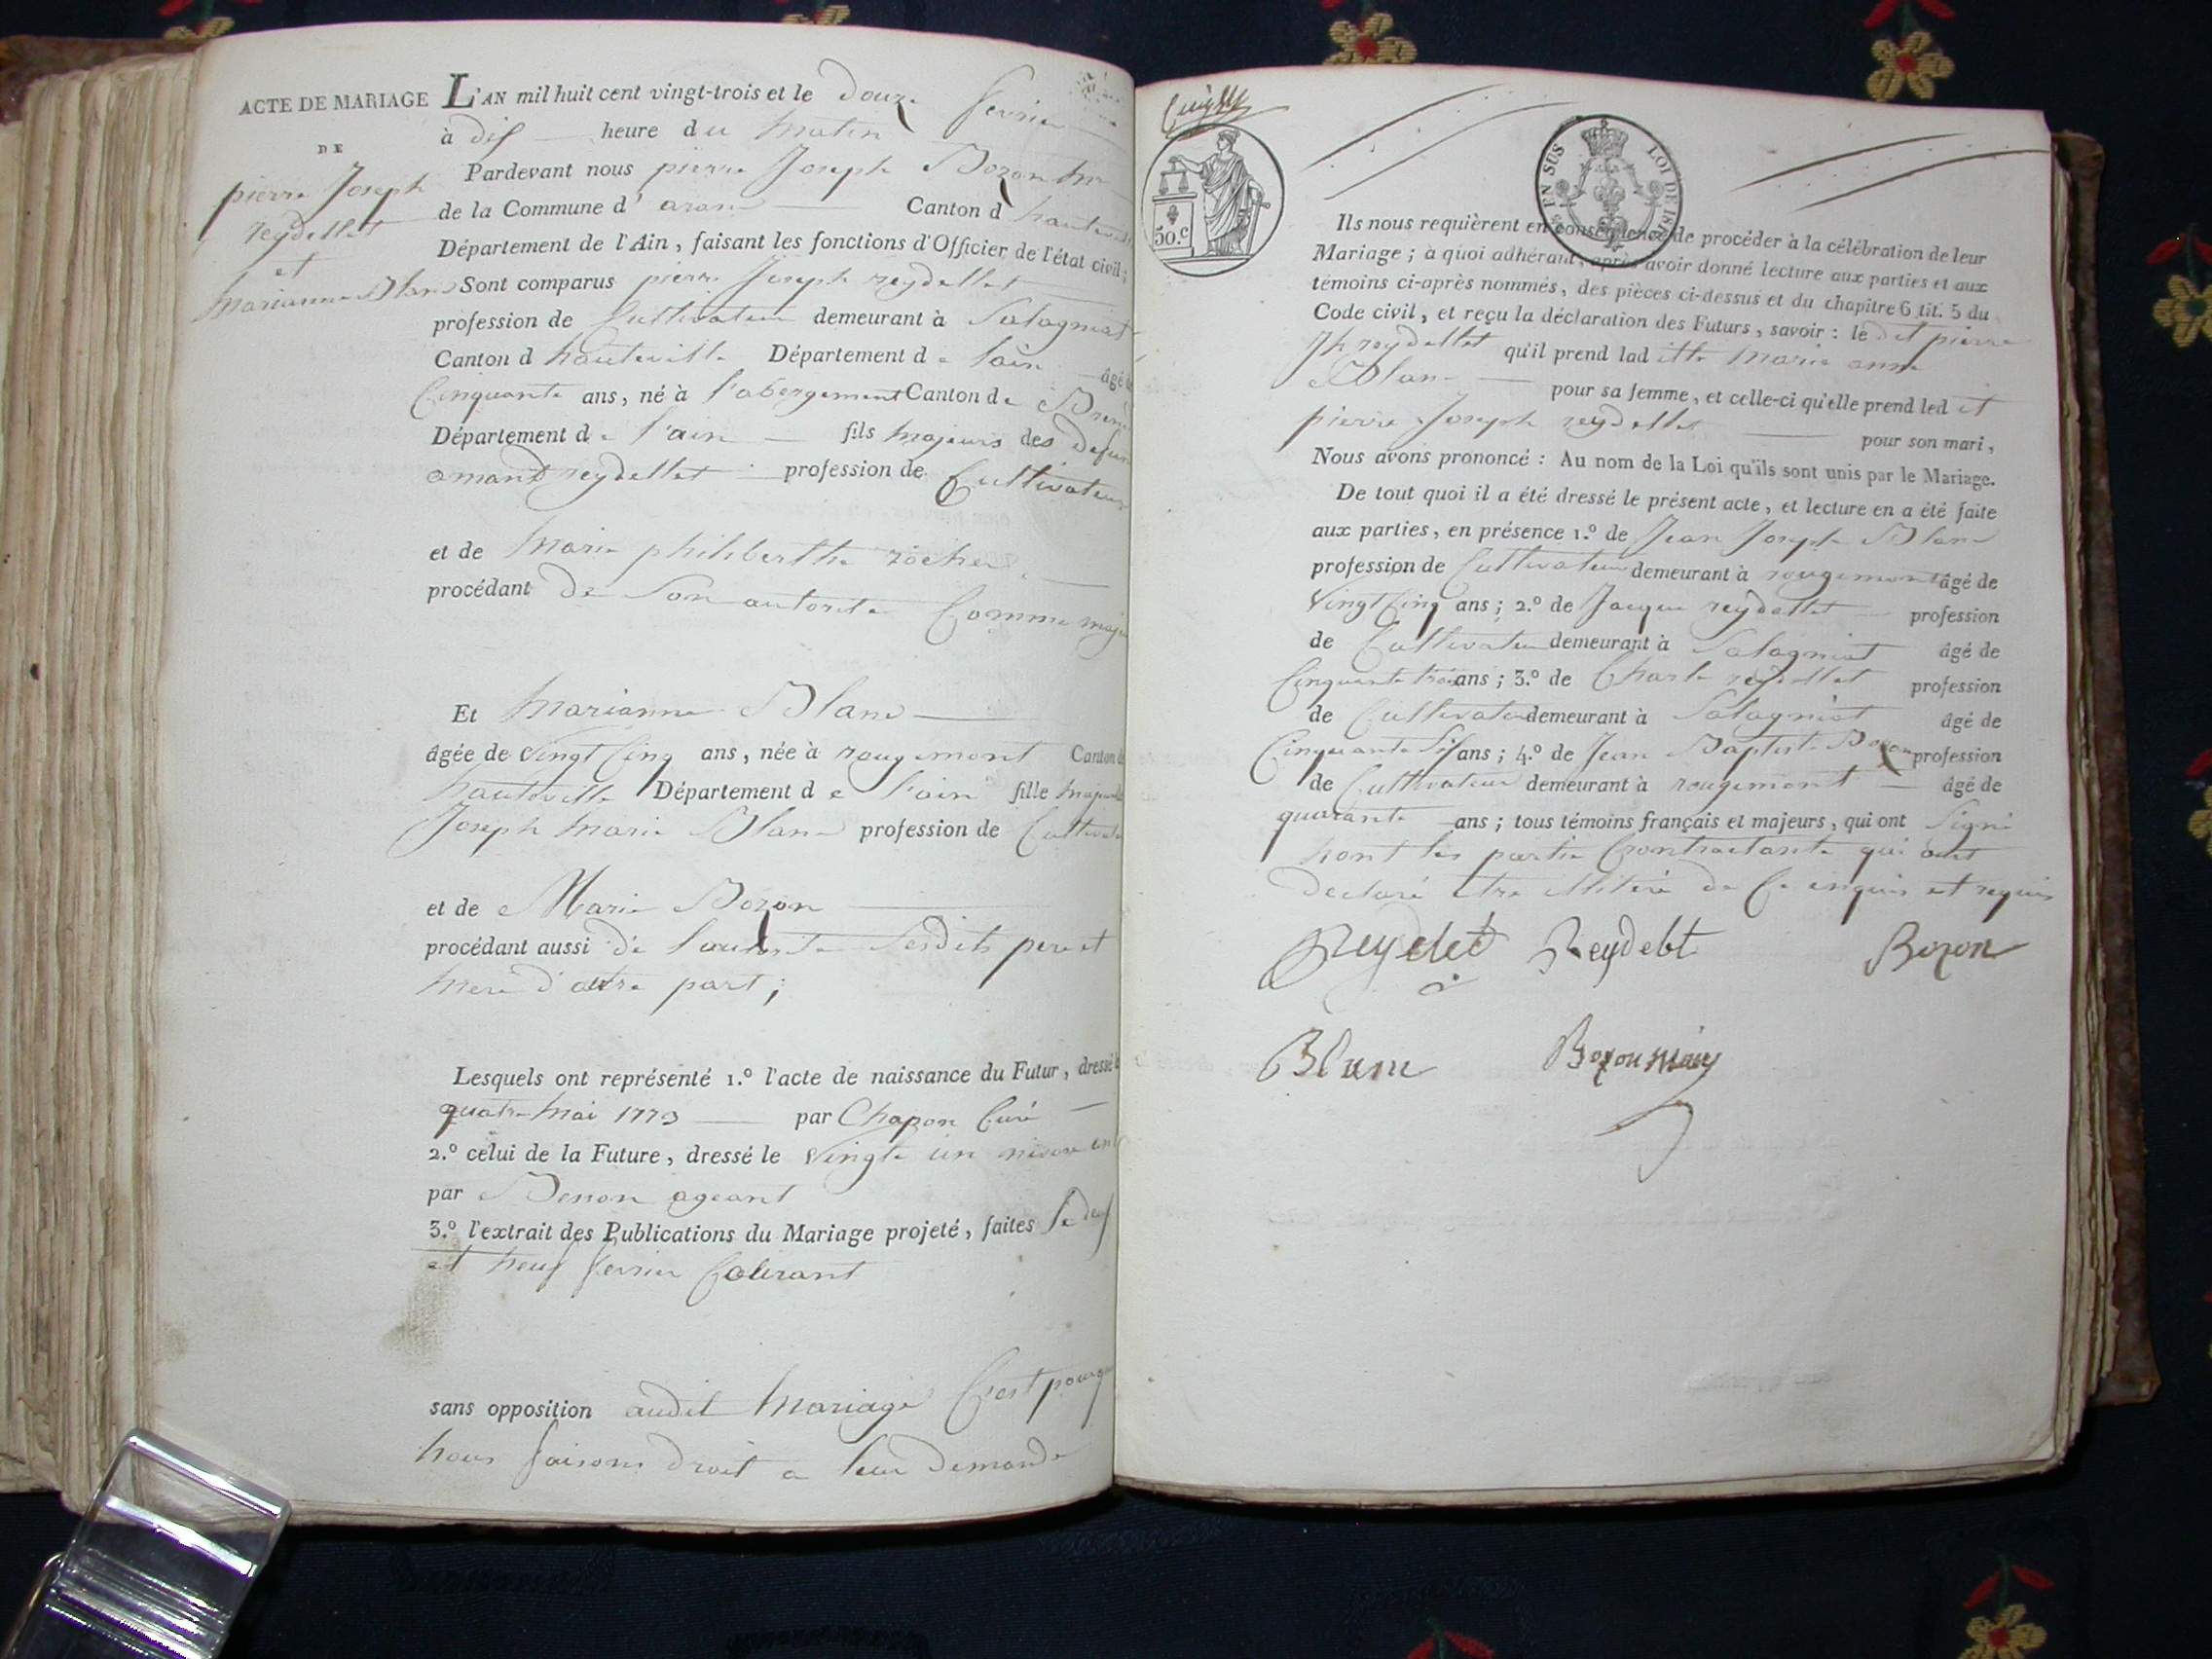 ACTE DE MARIAGE
DE
pierre Joseph
reydellet
et
Marianne Blanc
L'AN mil huit cent vingt-trois et le douze fevrier
à dix heure du matin
Pardevant nous pierre Joseph Bozon
de la Commune d' aranc Canton d hauteville
Département de l'Ain, faisant les fonctions d'Officier de l'état civil;
Sont comparus pierre Joseph reydellet
profession de Cultivateur demeurant à Salagniat
Canton d hauteville Département d e lain âgé de
Cinquante ans, né à l'abergement Canton de Bren
Département d e l'ain fils majeurs des defun
amand reydellet profession de Cultivateur
et de Marie philiberthe rochet
procédant de Son autorité Comme maje
Et Marianne Blanc
âgée de Vingt Cinq ans, née à rougemont Canton de
hauteville Département d e l'ain fille majeure
Joseph Marie Blanc profession de Cultivate
et de Marie Bozon
procédant aussi de l'autorité Sesdits pere et
mere d'autre part;
Lesquels ont représenté 1.º l'acte de naissance du Futur, dressé le
quatre Mai 1773 par Chapon Curé
2.º celui de la Future, dressé le Vingte un nivose an
par Benon ageant
3.º l'extrait des Publications du Mariage projeté, faites le deux
et neuf fevrier Courant
sans opposition audit Mariage C'est pourqu
nous faisons droit a leur demande
50.c
EN SUS LOI DE 18
Ils nous requièrent en conséquence de procéder à la célébration de leur
Mariage; à quoi adhérant, après avoir donné lecture aux parties et aux
témoins ci-après nommés, des pièces ci-dessus et du chapitre 6 tit. 5 du
Code civil, et reçu la déclaration des Futurs, savoir: le dit pierre
Jh reydellet qu'il prend lad itte Marie anne
Blanc pour sa femme, et celle-ci qu'elle prend led it
pierre Joseph reydellet pour son mari,
Nous avons prononcé: Au nom de la Loi qu'ils sont unis par le Mariage.
De tout quoi il a été dressé le présent acte, et lecture en a été faite
aux parties, en présence 1.º de Jean Joseph Blanc
profession de Cultivateur demeurant à rougemont âgé de
Vingt Cinq ans; 2.º de Jacque reydellet profession
de Cultivateur demeurant à Salagniat âgé de
Cinquante trois ans; 3.º de Charle reydellet profession
de Cultivateur demeurant à Salagniat âgé de
Cinquante Six ans; 4.º de Jean Baptiste Bozon profession
de Cultivateur demeurant à rougemont âgé de
quarante ans; tous témoins français et majeurs, qui ont Signé
nont les partie Contractante qui ont
declaré etre illiteré de Ce enquis et requis
Reydelet Reydelet Bozon
Blanc Bozon maire